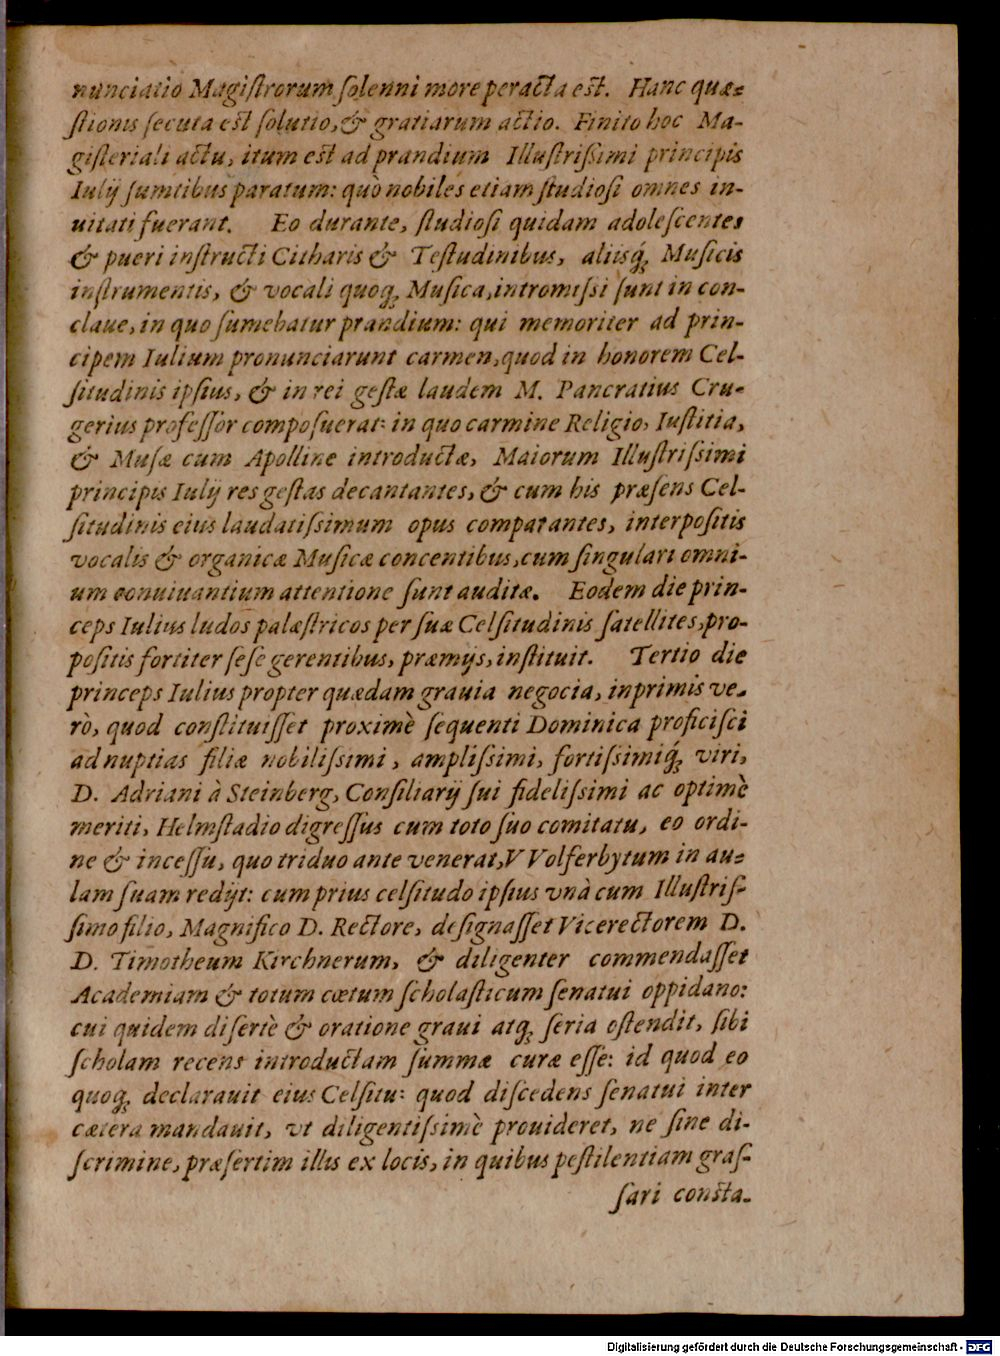 nunciatio Magiſtrorum ſolenni more peracta eſt. Hanc quæ-
ſtionis ſecuta eſt ſolutio, & gratiarum actio. Finito hoc Ma-
giſteriali actu, itum eſt ad prandium Illuſtriſſimi principis
Iulij ſumtibus paratum: quò nobiles etiam ſtudioſi omnes in-
uitati fuerant. Eo durante, ſtudioſi quidam adoleſcentes
& pueri inſtructi Citharis & Teſtudinibus, aliisq́; Muſicis
inſtrumentis, & vocali quoq; Muſica, intromiſſi ſunt in con-
claue, in quo ſumebatur prandium: qui memoriter ad prin-
cipem Iulium pronunciarunt carmen, quod in honorem Cel-
ſitudinis ipſius, & in rei geſtæ laudem M. Pancratius Cru-
gerius profeſſor compoſuerat: in quo carmine Religio, Iuſtitia,
& Muſæ cum Apolline introductæ, Maiorum Illuſtriſſimi
principis Iulij res geſtas decantantes, & cum his præſens Cel-
ſitudinis eius laudatiſſimum opus comparantes, interpoſitis
vocalis & organicæ Muſicæ concentibus, cum ſingulari omni-
um conuiuantium attentione ſunt auditæ. Eodem die prin-
ceps Iulius ludos palæſtricos per ſuæ Celſitudinis ſatellites, pro-
poſitis fortiter ſeſe gerentibus, præmijs, inſtituit. Tertio die
princeps Iulius propter quædam grauia negocia, inprimis ve-
rò, quod conſtituiſſet proximè ſequenti Dominica proficiſci
ad nuptias filiæ nobiliſſimi, ampliſſimi, fortiſſimiq́; viri,
D. Adriani à Steinberg, Conſiliarij ſui fideliſſimi ac optimè
meriti, Helmſtadio digreſſus cum toto ſuo comitatu, eo ordi-
ne & inceſſu, quo triduo ante venerat, VVolferbytum in au-
lam ſuam redijt: cum prius celſitudo ipſius vnà cum Illuſtriſ-
ſimo filio, Magnifico D. Rectore, deſignaſſet Vicerectorem D.
D. Timotheum Kirchnerum, & diligenter commendaſſet
Academiam & totum cœtum ſcholaſticum ſenatui oppidano:
cui quidem diſertè & oratione graui atq; ſeria oſtendit, ſibi
ſcholam recens introductam ſummæ curæ eſſe: id quod eo
quoq; declarauit eius Celſitu: quod diſcedens ſenatui inter
cætera mandauit, vt diligentiſſimè prouideret, ne ſine di-
ſcrimine, præſertim illis ex locis, in quibus peſtilentiam graſ-
ſari conſta-
Digitalisierung gefördert durch die Deutsche Forschungsgemeinschaft - DFG